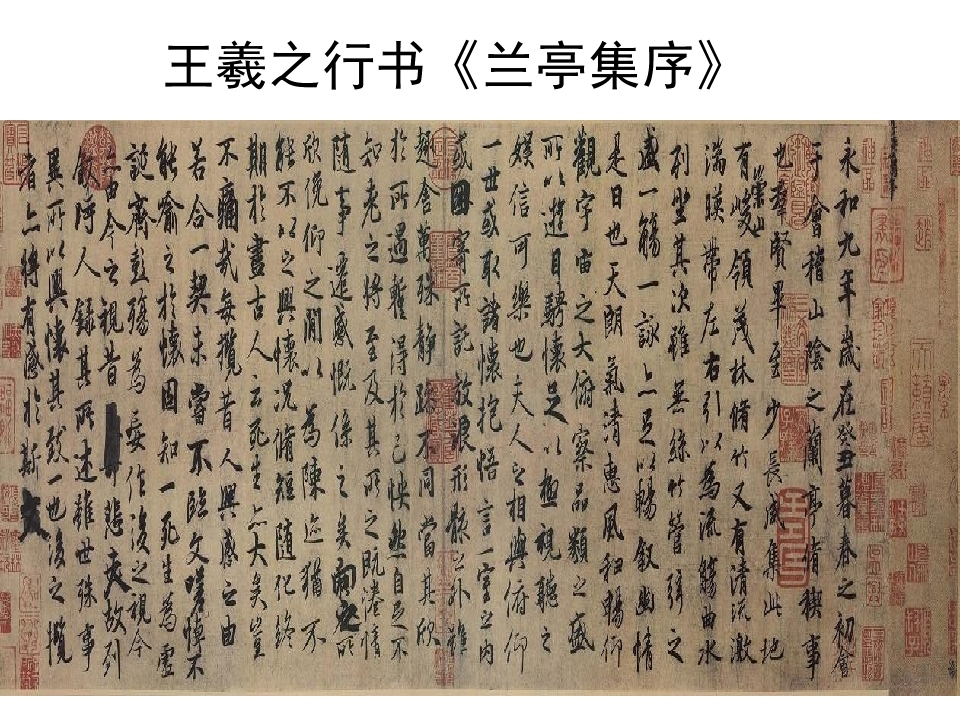 王羲之行书《兰亭集序》
永和九年歲在癸丑暮春之初會
于會稽山陰之蘭亭脩稧事
也羣賢畢至少長咸集此地
有崇山峻領茂林脩竹又有清流激
湍暎帶左右引以為流觴曲水
列坐其次雖無絲竹管弦之
盛一觴一詠亦足以暢叙幽情
是日也天朗氣清惠風和暢仰
觀宇宙之大俯察品類之盛
所以遊目騁懷足以極視聽之
娛信可樂也夫人之相與俯仰
一世或取諸懷抱悟言一室之內
或因寄所託放浪形骸之外雖
趣舍萬殊靜躁不同當其欣
於所遇蹔得於己怏然自足不
知老之將至及其所之既惓情
隨事遷感慨係之矣向之所
欣俛仰之閒以為陳迹猶不
能不以之興懷況脩短隨化終
期於盡古人云死生亦大矣豈
不痛哉每攬昔人興感之由
若合一契未嘗不臨文嗟悼不
能喻之於懷固知一死生為虛
誕齊彭殤為妄作後之視今
亦由今之視昔悲夫故列
敘時人錄其所述雖世殊事
異所以興懷其致一也後之攬
者亦將有感於斯文